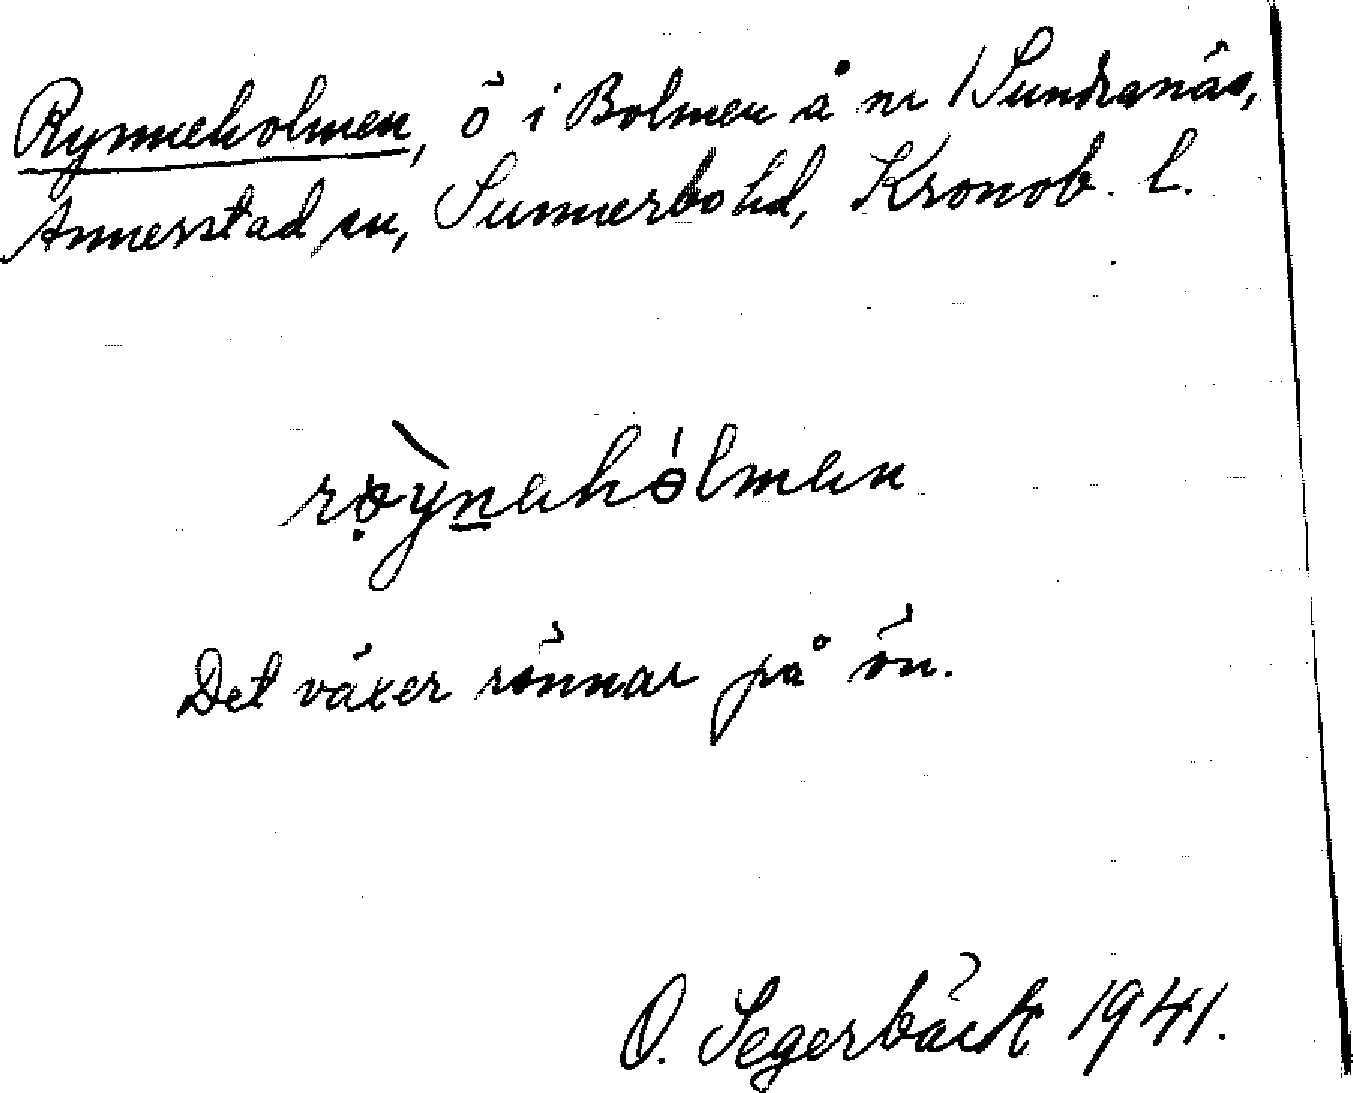 Rynneholmen, ö i Bolmen å nr 1 Sundranäs,
Annerstad sn, Sunnerbo hd, Kronob. l.
røynehólmen
Det växer rönnar på ön.
O. Segerbäck 1941.